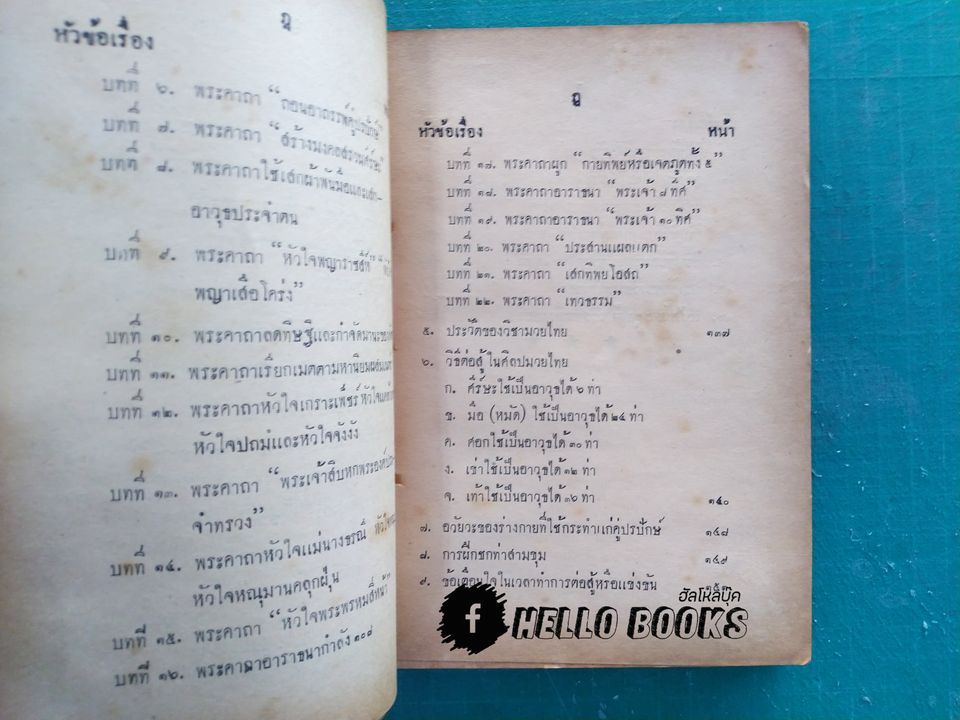 ฎ
หัวข้อเรื่อง
บทที่ ๖. พระคาถา “ถอนอาถรรพ์คู่ปรปักษ์”
บทที่ ๗. พระคาถา “สร้างมงคลสวมศีรษะ”
บทที่ ๘. พระคาถาใช้เสกผ้าพันมือและเสก-
อาวุธประจำตน
บทที่ ๙. พระคาถา “หัวใจพญาราชสีห์”
พญาเสือโคร่ง”
บทที่ ๑๐. พระคาถาลดทิษฐิและกำจัดมานะของ
บทที่ ๑๑. พระคาถาเรียกเมตตามหานิยม
บทที่ ๑๒. พระคาถาหัวใจเกราะเพ็ชร์ หัวใจ
หัวใจปถมํและหัวใจจังงัง
บทที่ ๑๓. พระคาถา “พระเจ้าสิบหกพระองค์
จำทรวง”
บทที่ ๑๔. พระคาถาหัวใจแม่นางธรณี
หัวใจหณุมานคลุกฝุ่น
บทที่ ๑๕. พระคาถา “หัวใจพระพรหมสี่หน้า”
บทที่ ๑๖. พระคาถาอาราธนากำลัง ๑๐๘
ฏ
หัวข้อเรื่อง หน้า
บทที่ ๑๗. พระคาถาผูก “กายทิพย์หรือเจตภูตทั้ง ๕”
บทที่ ๑๘. พระคาถาอาราธนา “พระเจ้า ๘ ทิศ”
บทที่ ๑๙. พระคาถาอาราธนา “พระเจ้า ๑๐ ทิศ”
บทที่ ๒๐. พระคาถา “ประสานแผลแตก”
บทที่ ๒๑. พระคาถา “เสกทิพยโอสถ”
บทที่ ๒๒. พระคาถา “เทวธรรม”
๕. ประวัติของวิชามวยไทย ๑๓๗
๖. วิธีต่อสู้ในศิลปมวยไทย
ก. ศีร์ษะใช้เป็นอาวุธได้ ๖ ท่า
ข. มือ (หมัด) ใช้เป็นอาวุธได้ ๒๔ ท่า
ค. ศอกใช้เป็นอาวุธได้ ๓๐ ท่า
ง. เข่าใช้เป็นอาวุธได้ ๑๒ ท่า
จ. เท้าใช้เป็นอาวุธได้ ๓๖ ท่า ๑๔๐
๗. อวัยวะของร่างกายที่ใช้กระทำแก่คู่ปรปักษ์ ๑๔๘
๘. การฝึกชกท่าสามขุม ๑๔๙
๙. ข้อเตือนใจในเวลาทำการต่อสู้หรือแข่งขัน
ฮัลโหลบุ๊ค
f HELLO BOOKS